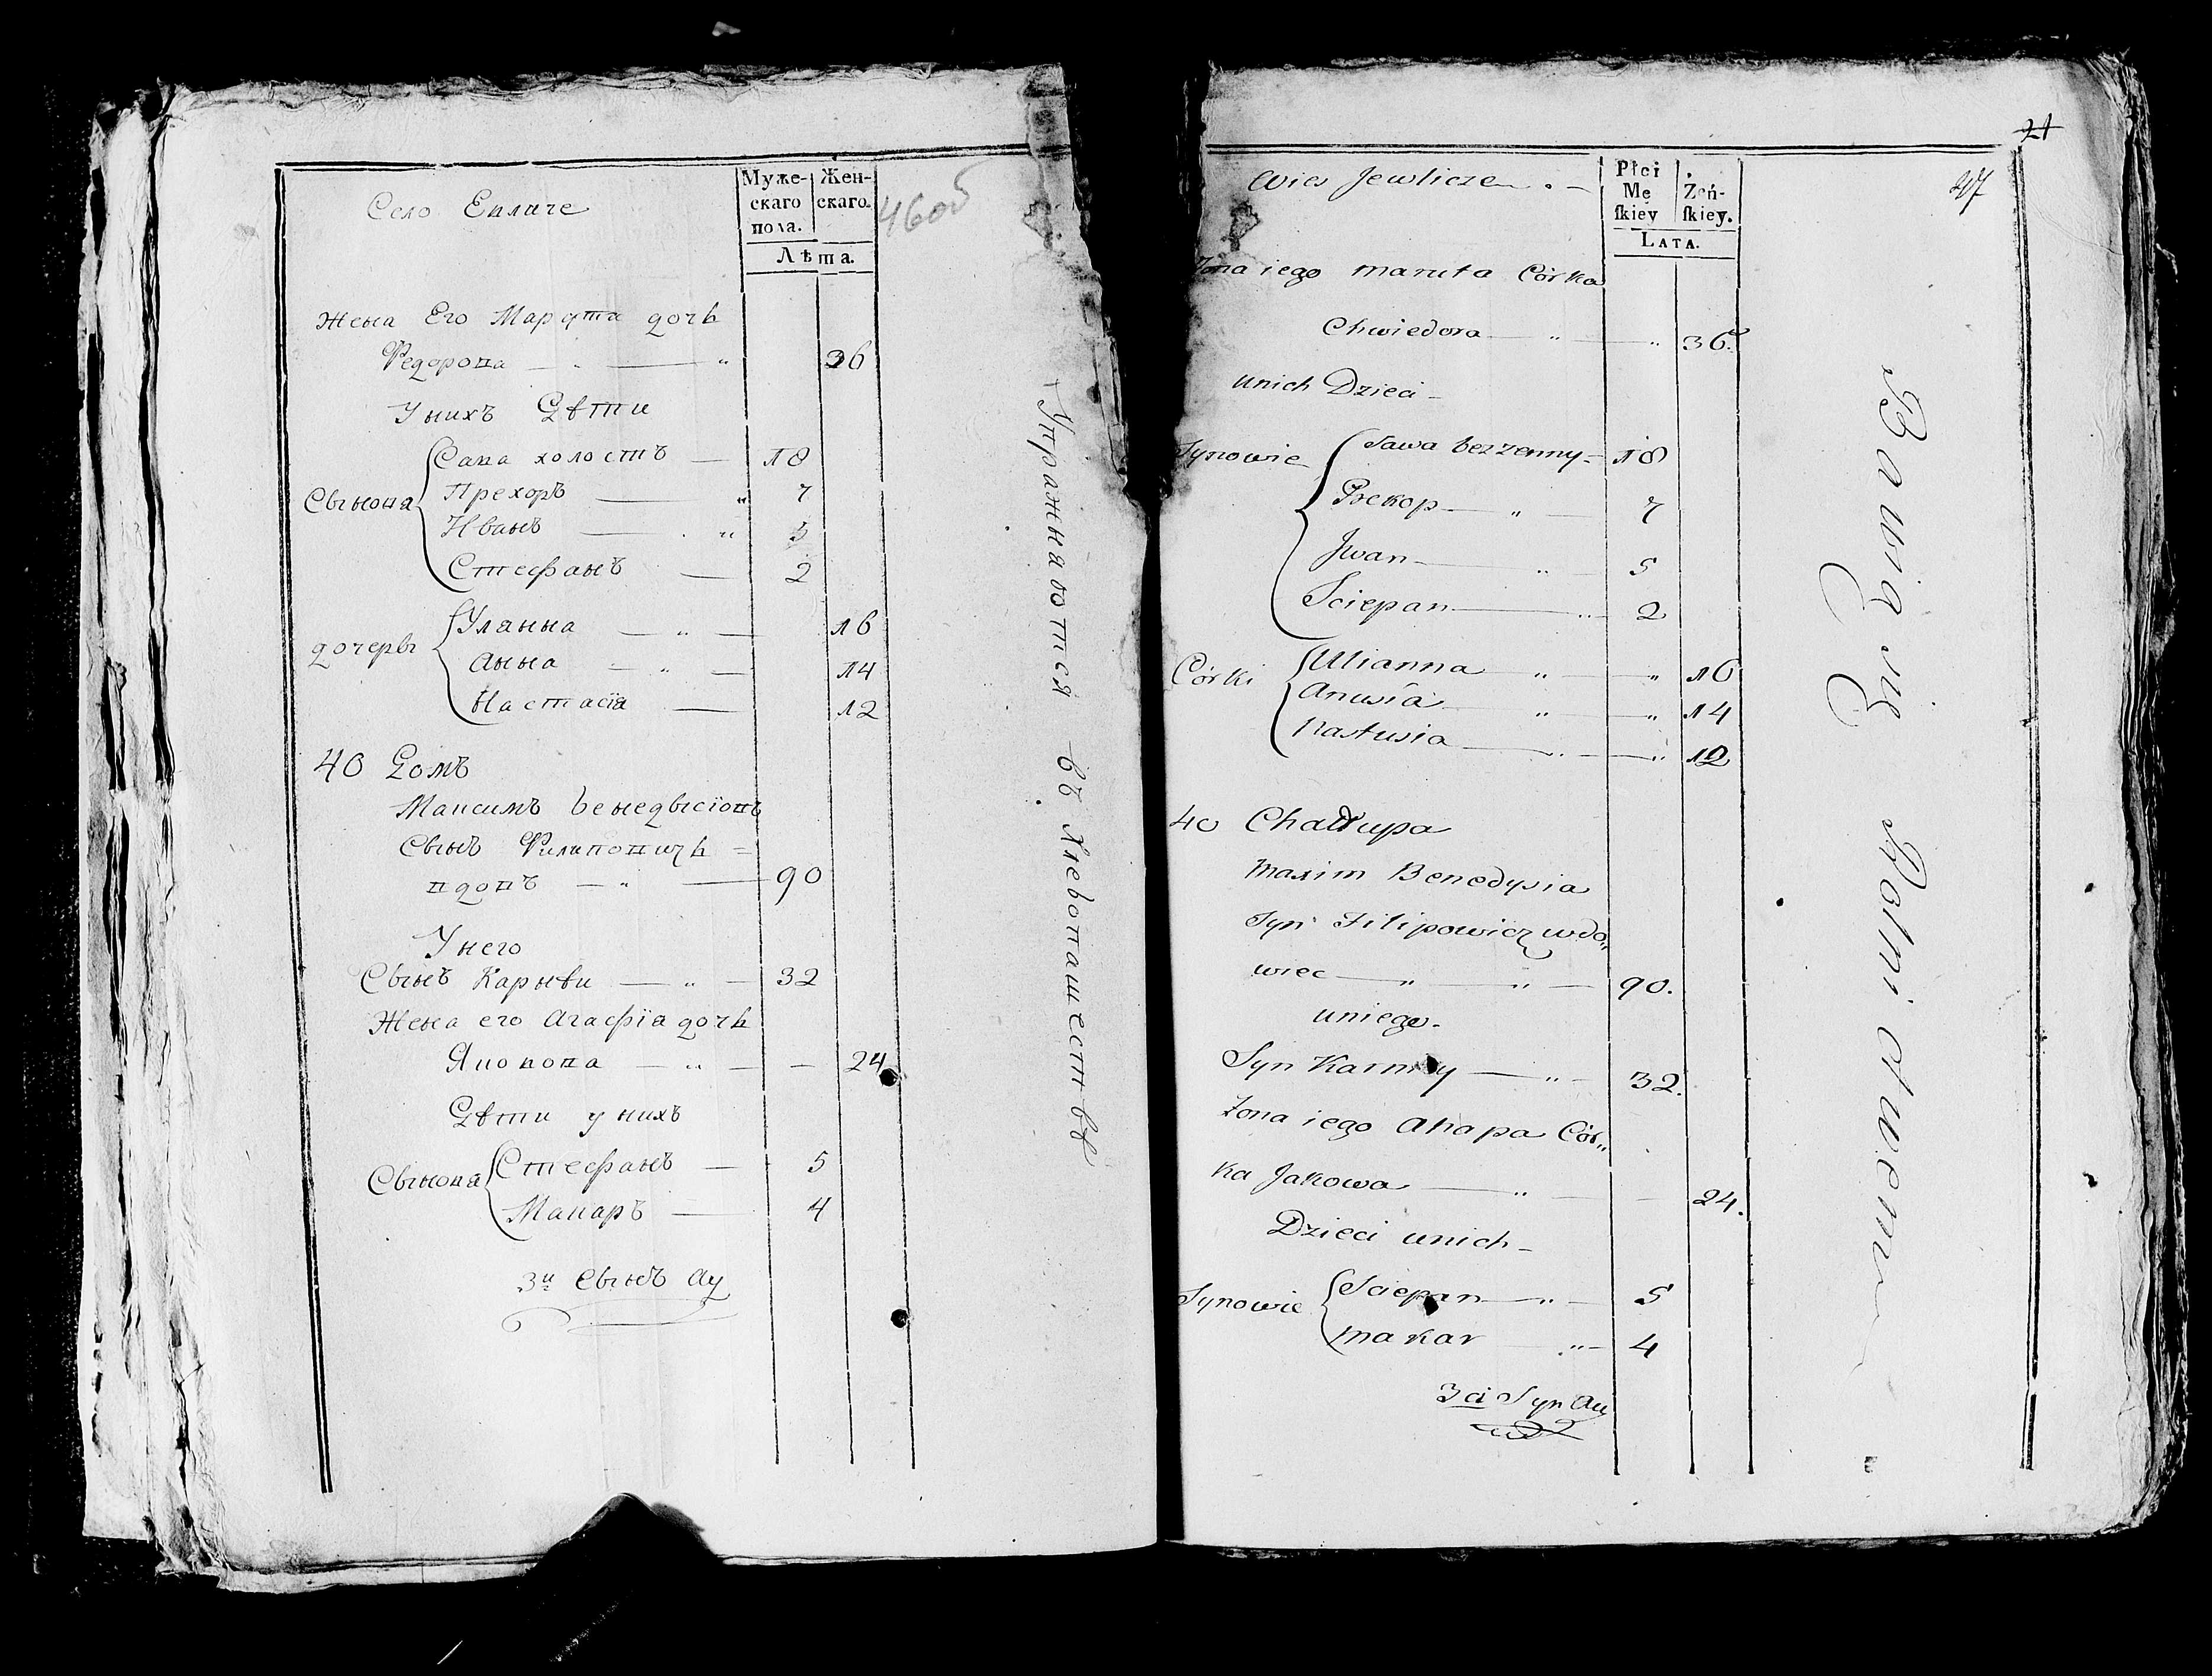 Село Евличе
Муже-
скаго
пола.
Жен-
скаго.
Лѣта.
46об
Жена Его Марута дочь
Федорова — „ — „ 36
У нихъ Дѣти
Сыновя
Сава холостъ — 18
Прехоръ — „ 7
Иванъ — „ 5
Стефанъ — 2
дочеры
Уланна — „ — 16
Анна — „ — 14
Настасїя — 12
40 Домъ
Максимъ Бенедысїовъ
Сынъ Филиповичь =
вдовъ — „ — 90
У него
Сынъ Карнѣи — „ — 32
Жена его Агафїя дочь
Яковова — „ — — 24
Дѣти у нихъ
Сыновя
Стефанъ — 5
Макаръ — 4
3и Сынъ Ау
Упражняются въ Хлебопашествѣ
21
47
Wies Jewlicze
Płci
Mę
ſkiey
Żeń-
ſkiey.
LATA.
Zona iego Maruta Córka
Chwiedora — „ — „ 36.
unich Dzieci —
Synowie
Sawa bezzenny — 18
Prokop — „ — 7
Jwan — „ — 5
Sciepan — „ 2
Córki
Ulianna — „ — „ 16
Anusia „ — „ 14
Nastusia — „ — „ 12
40 Chałupa
Maxim Benedysia
Syn Filipowicz wdo„
wiec — „ — „ — 90.
uniego.
Syn Karniey — „ — 32.
Zona iego Ahapa Cór„
ka Jakowa — „ — — 24.
Dzieci unich —
Synowie
Sciepan — „ — 5
Makar — „ — 4
3ci Syn Au
Bawią się Rolnictwem